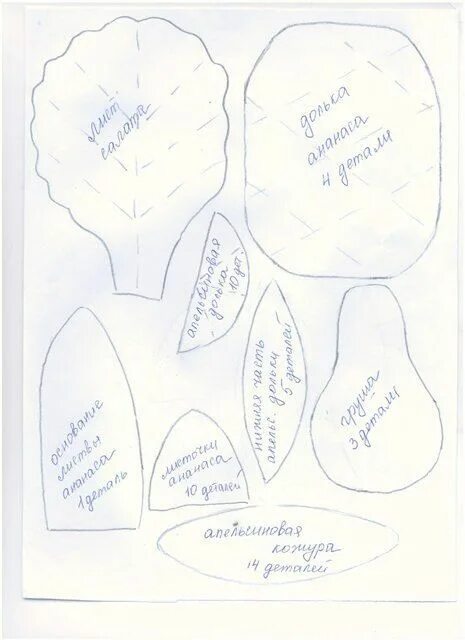 лист
салата
долька
ананаса
4 детали
апельсиновая
долька
10 дет.
нижняя часть
апельс. дольки
5 деталей
груша
3 детали
основание
листвы
ананаса
1 деталь
листочки
ананаса
10 деталей
апельсиновая
кожура
14 деталей